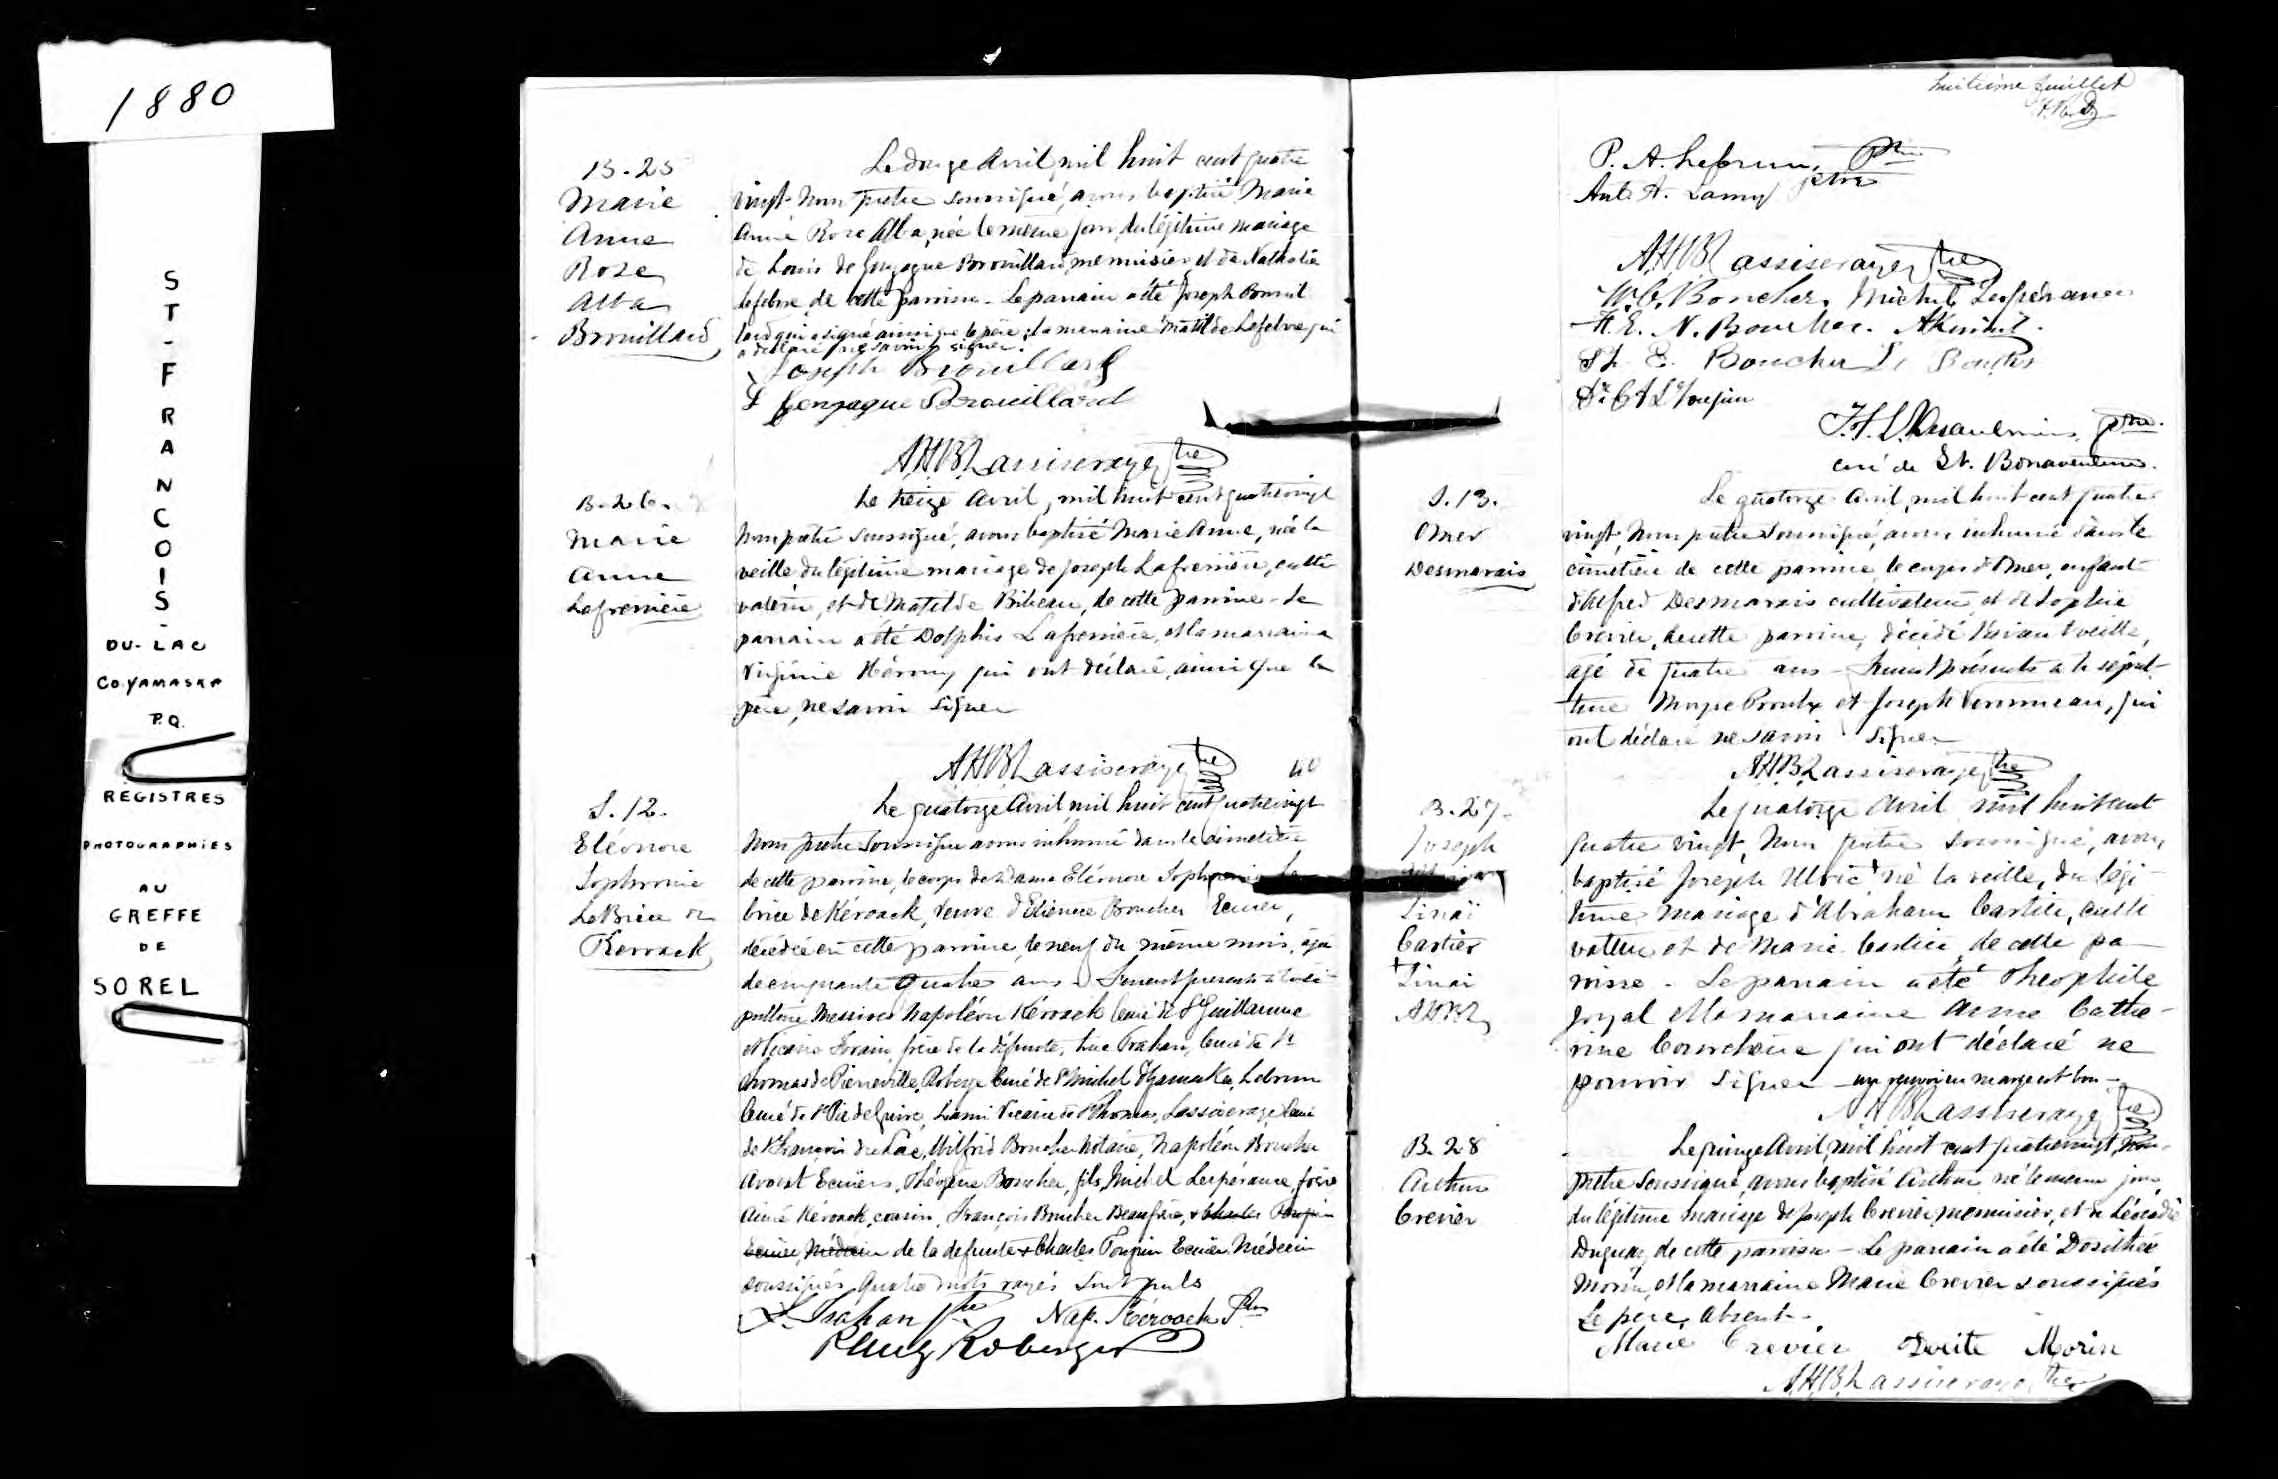 1880
ST-FRANCOIS-
DU-LAC
CO. YAMASKA
P.Q.
REGISTRES
PHOTOGRAPHIÉS
AU
GREFFE
DE
SOREL
B-25
Marie
Anne
Rose
Alba
Brouillard
Le douze Avril mil huit cent quatre
vingt Nous prêtre soussigné, avons baptisé Marie
Anne Rose Alba, née le même jour, du légitime mariage
de Louis de Gonzague Brouillard menuisier et de Nathalie
Lefebvre de cette paroisse - Le parrain a été Joseph Brouil
lard qui a signé ainsi que le père; la marraine Matilde Lefebvre qui
a déclaré ne savoir signer.
Joseph Brouillard
L Gonzague Brouillard
A.H.B. Lassiseraye ptre
B-26
Marie
Anne
Lafrenière
Le treize Avril, mil huit cent quatrevingt
Nous prêtre soussigné, avons baptisé Marie Anne, née la
veille, du légitime mariage de Joseph Lafrenière, culti
vateur, et de Matilde Bibeau, de cette paroisse - Le
parrain a été Dolphis Lafrenière, et la marraine
Virginie qui ont déclaré, ainsi que le
père, ne savoir signer
A.H.B. Lassiseraye ptre
40
S. 12.
Eléonore
Sophronie
LeBrice de
Kerouack
Le quatorze Avril mil huit cent quatrevingt
Nous prêtre soussigné avons inhumé dans le cimetière
de cette paroisse, le corps de Dame Eléonore Sophronie Le
brice de Kérouack, veuve d'Etienne Boucher Ecuier,
décédée en cette paroisse, le neuf du même mois, âgée
de cinquante quatre ans - Furent présents à la sé-
pulture Messires Napoléon Kérouack Curé de St Guillaume
frère de la défunte, Trahan, Curé de St
Thomas de Pierreville, Roberge Curé de St Michel d'Yamaska, Lebrun
Curé de St Pie de Guire, Lami Vicaire de St Thomas, Lassiseraye Curé
de St François du Lac, Wilfrid Boucher Notaire, Napoléon Boucher
Avocat Ecuiers, Boucher, fils, Michel Lespérance, frère
Aimé Kérouack, cousin, François Boucher Beaufrère, & Charles Toupin
Ecuier, Médecin de la défunte & Charles Toupin Ecuier Médecin
soussignés. Quatre mots rayés sont nuls
Trahan Ptre Nap. Kérouack Ptre
Roberge
huitième Juillet
P. A. Lebrun, Ptre
Ant. A. Lamy ptre
A.H.B. Lassiseraye ptre
W. C. Boucher, Michel Lespérance
H. E. N. Boucher. AKirouac.
E. Boucher
Dr C Toupin
ptre.
curé de St. Bonaventure.
S. 13.
Omer
Desmarais
Le quatorze Avril, mil huit cent quatre
vingt, Nous prêtre soussigné, avons inhumé dans le
cimetière de cette paroisse, le corps d'Omer, enfant
d'Alfred Desmarais cultivateur, et de Sophie
Crevier, de cette paroisse, décédé l'avant veille,
âgé de quatre ans - Furent présents à la sépul-
ture Moyse Proulx et Joseph Véronneau, qui
ont déclaré ne savoir signer
A.H.B. Lassiseraye ptre
B-27.
Joseph
Sinaï
Cartier
+ Sinaï
AHBL
Le quatorze Avril mil huit cent
quatre vingt, Nous prêtre soussigné, avons
baptisé Joseph Ulric + né la veille, du légi-
time mariage d'Abraham Cartier, culti
vateur et de Marie Cartier, de cette pa-
roisse - Le parrain a été Théophile
Joyal et la marraine Anne Cathe-
rine Courchène qui ont déclaré ne
pouvoir signer - un renvoi en marge est bon -
A.H.B. Lassiseraye ptre
B. 28
Arthur
Crevier
Le quinze Avril, mil huit cent quatrevingt, Nous
prêtre soussigné, avons baptisé Arthur né le même jour
du légitime mariage de Joseph Crevier menuisier, et de Léocadie
Duguay, de cette paroisse - Le parrain a été Dosithée
Morin, et la marraine Marie Crevier soussignés
Le père, absent -
Marie Crevier Dosité Morin
A.H.B. Lassiseraye ptre